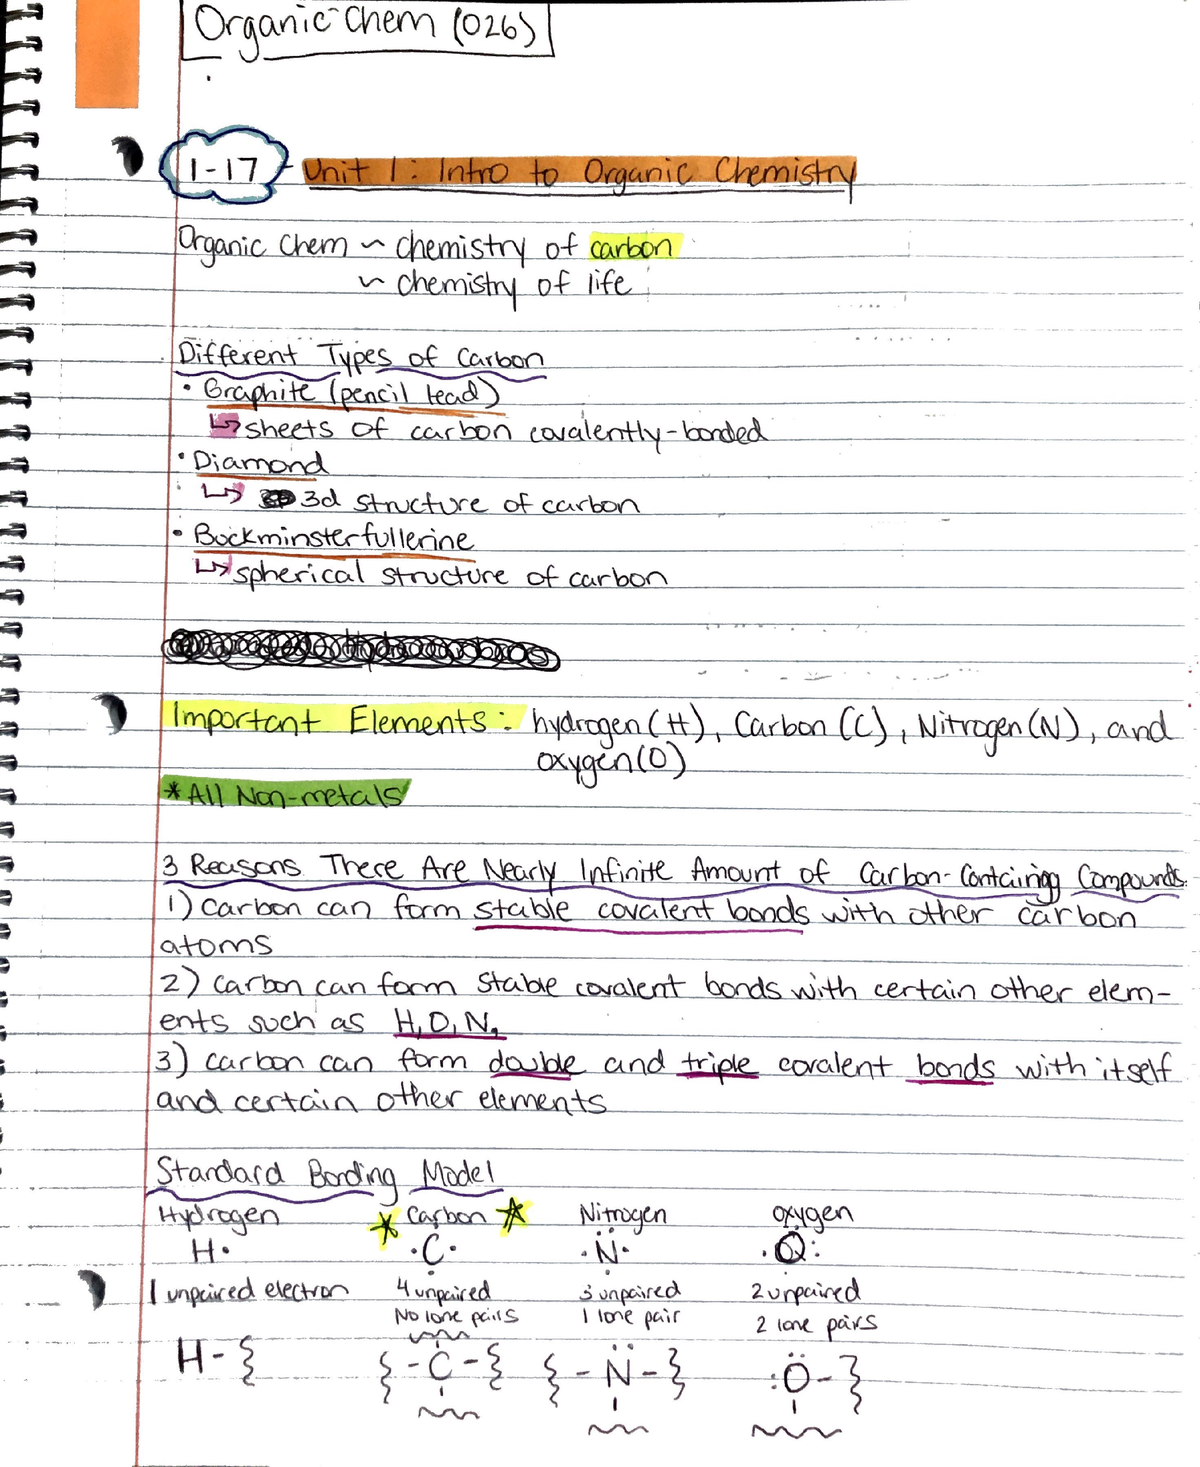 Organic Chem (026)
1-17 - Unit 1: Intro to Organic Chemistry
Organic Chem ~ chemistry of carbon
~ chemistry of life
Different Types of Carbon
• Graphite (pencil lead)
↳ sheets of carbon covalently-bonded
• Diamond
↳ 3d structure of carbon
• Buckminsterfullerine
↳ spherical structure of carbon
Important Elements: hydrogen (H), Carbon (C), Nitrogen (N), and
oxygen (O)
* All Non-metals
3 Reasons There Are Nearly Infinite Amount of Carbon-Containing Compounds
1) Carbon can form stable covalent bonds with other carbon
atoms
2) Carbon can form stable covalent bonds with certain other elem-
ents such as H, O, N,
3) Carbon can form double and triple covalent bonds with itself
and certain other elements
Standard Bonding Model
Hydrogen ☆ Carbon ☆ Nitrogen oxygen
H· ·C· ·N· ·O:
1 unpaired electron 4 unpaired 3 unpaired 2 unpaired
No lone pairs 1 lone pair 2 lone pairs
H- -C- -N- :O-